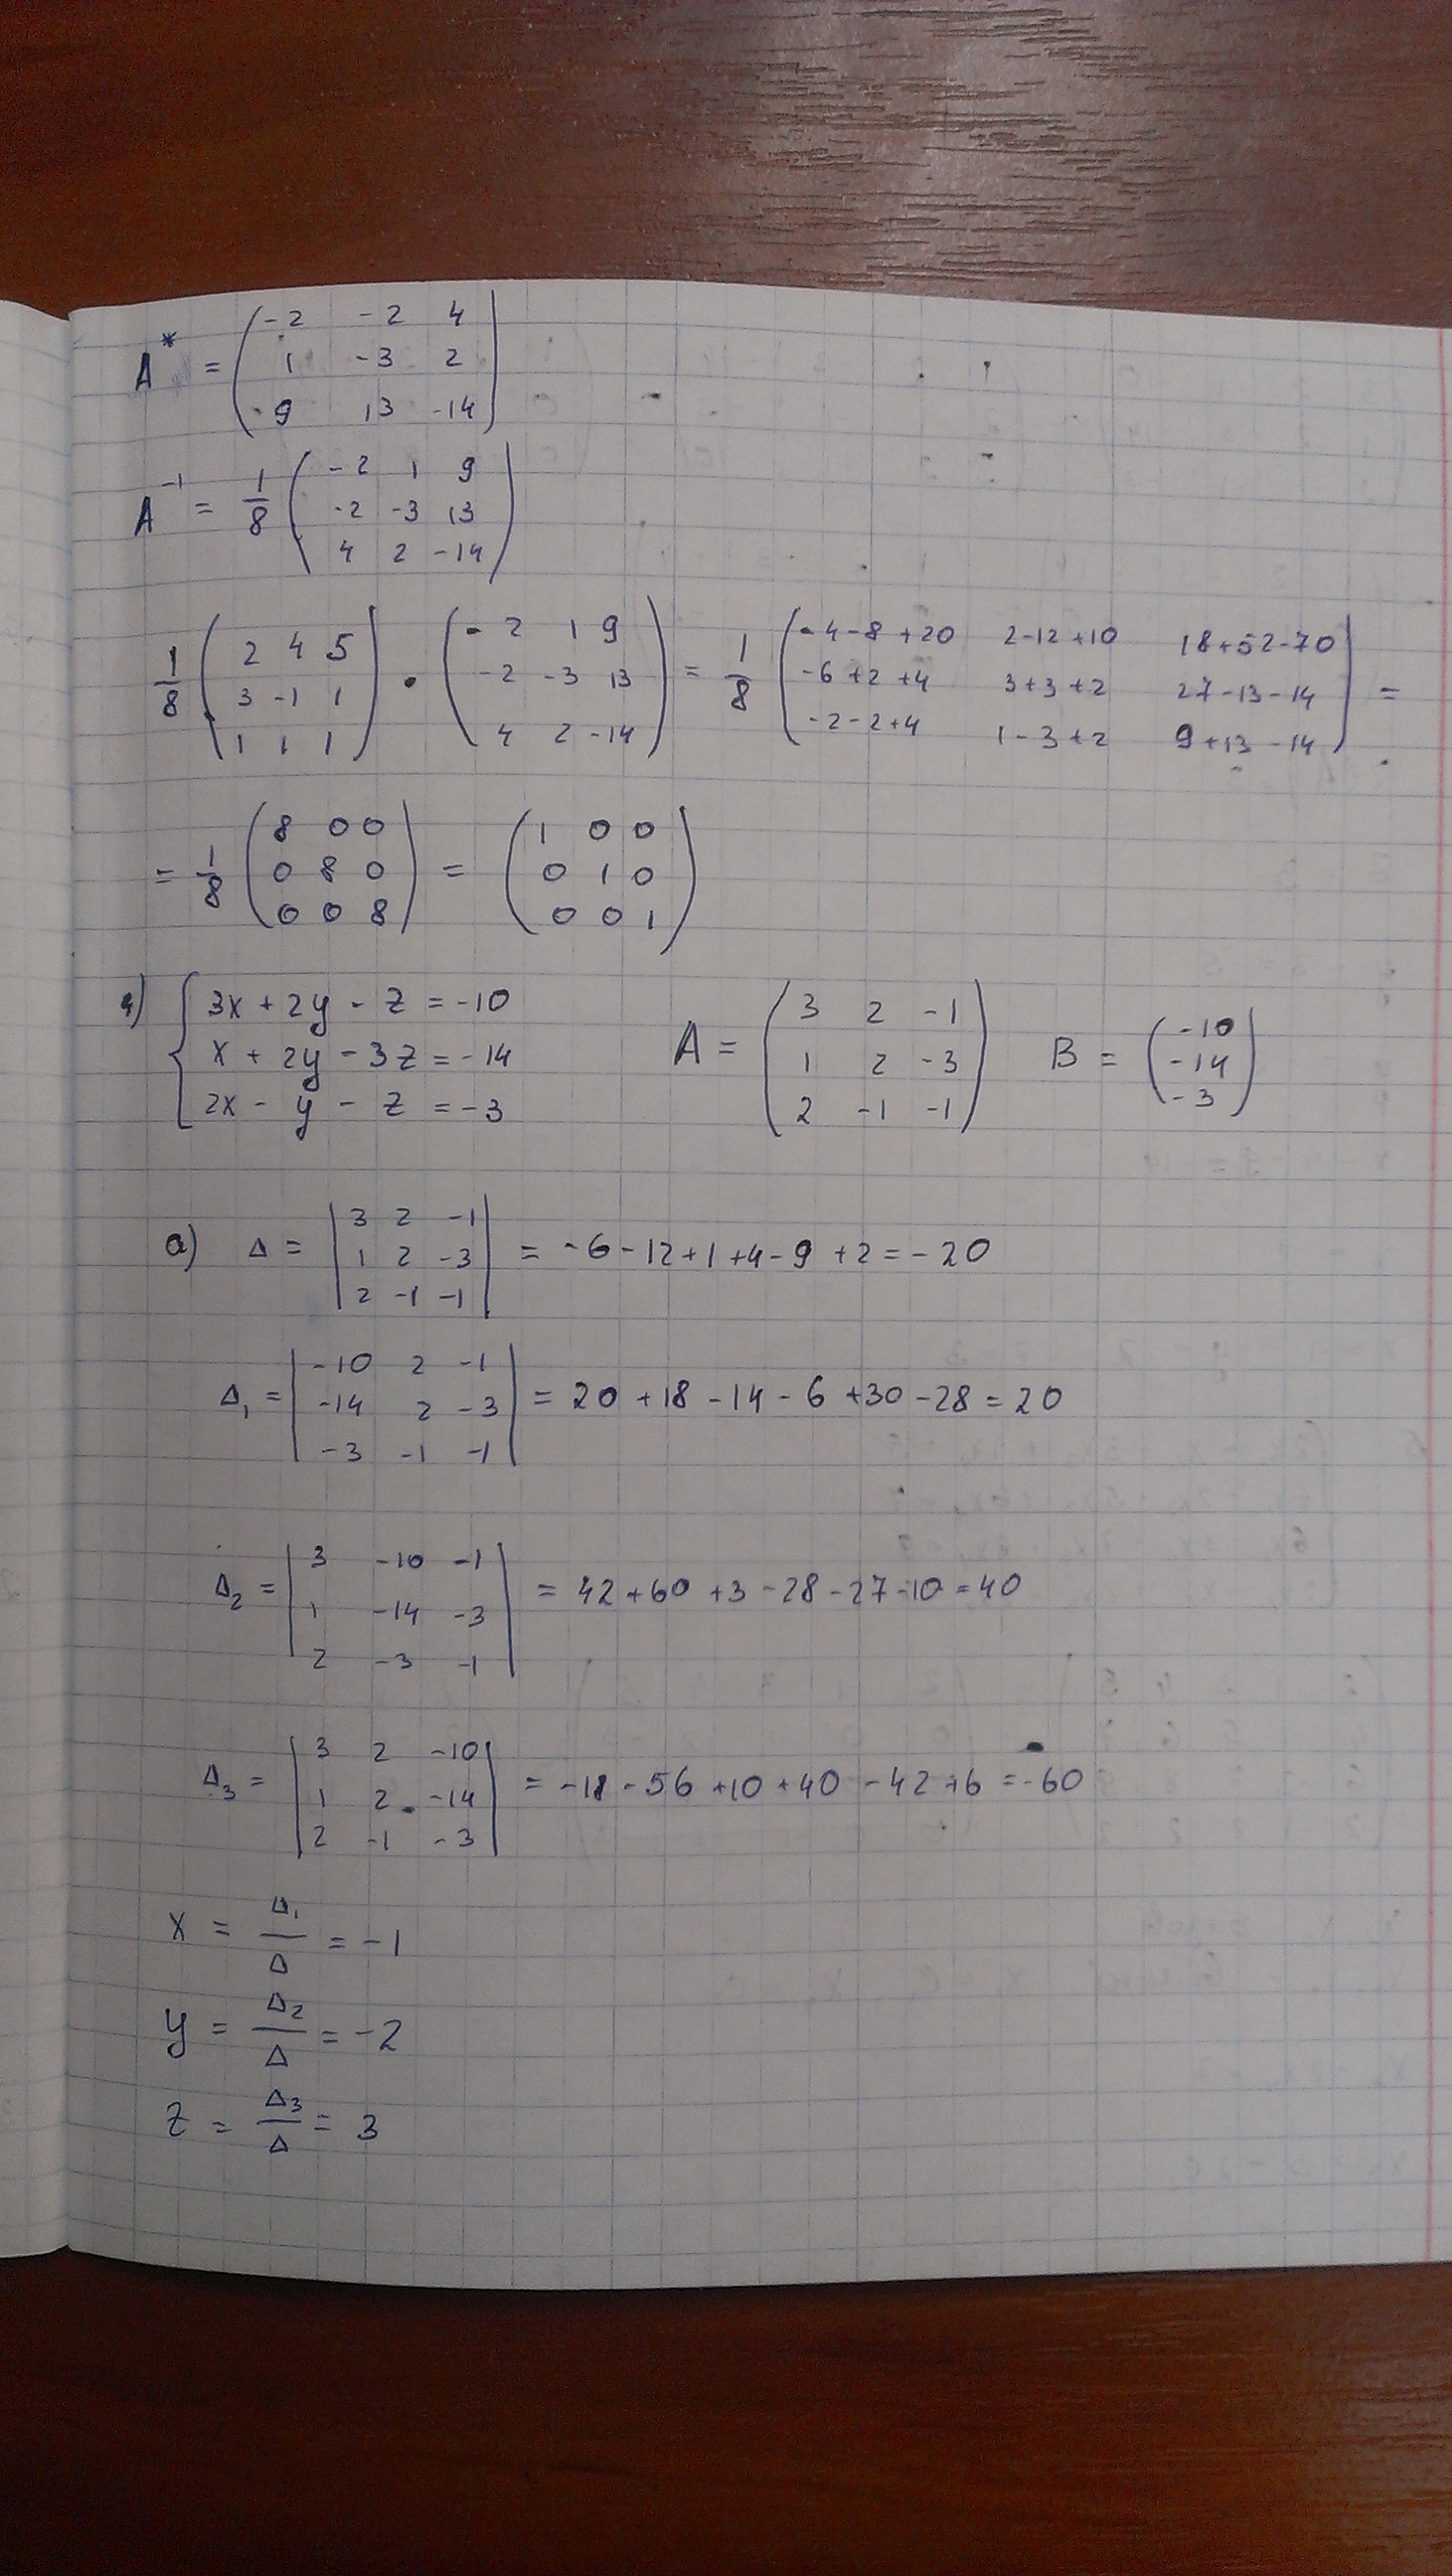 A* = ( -2 -2 4
1 -3 2
9 13 -14 )
A⁻¹ = 1/8 ( -2 1 9
-2 -3 13
4 2 -14 )
1/8 ( 2 4 5
3 -1 1
1 1 1 ) · ( -2 1 9
-2 -3 13
4 2 -14 ) = 1/8 ( -4-8+20 2-12+10 18+52-70
-6+2+4 3+3+2 27-13-14
-2-2+4 1-3+2 9+13-14 ) =
= 1/8 ( 8 0 0
0 8 0
0 0 8 ) = ( 1 0 0
0 1 0
0 0 1 )
4) { 3x + 2y - z = -10
x + 2y - 3z = -14
2x - y - z = -3
A = ( 3 2 -1
1 2 -3
2 -1 -1 )
B = ( -10
-14
-3 )
a) Δ = | 3 2 -1
1 2 -3
2 -1 -1 | = -6-12+1+4-9+2 = -20
Δ₁ = | -10 2 -1
-14 2 -3
-3 -1 -1 | = 20+18-14-6+30-28 = 20
Δ₂ = | 3 -10 -1
1 -14 -3
2 -3 -1 | = 42+60+3-28-27-10 = 40
Δ₃ = | 3 2 -10
1 2 -14
2 -1 -3 | = -18-56+10+40-42+6 = -60
x = Δ₁/Δ = -1
y = Δ₂/Δ = -2
z = Δ₃/Δ = 3